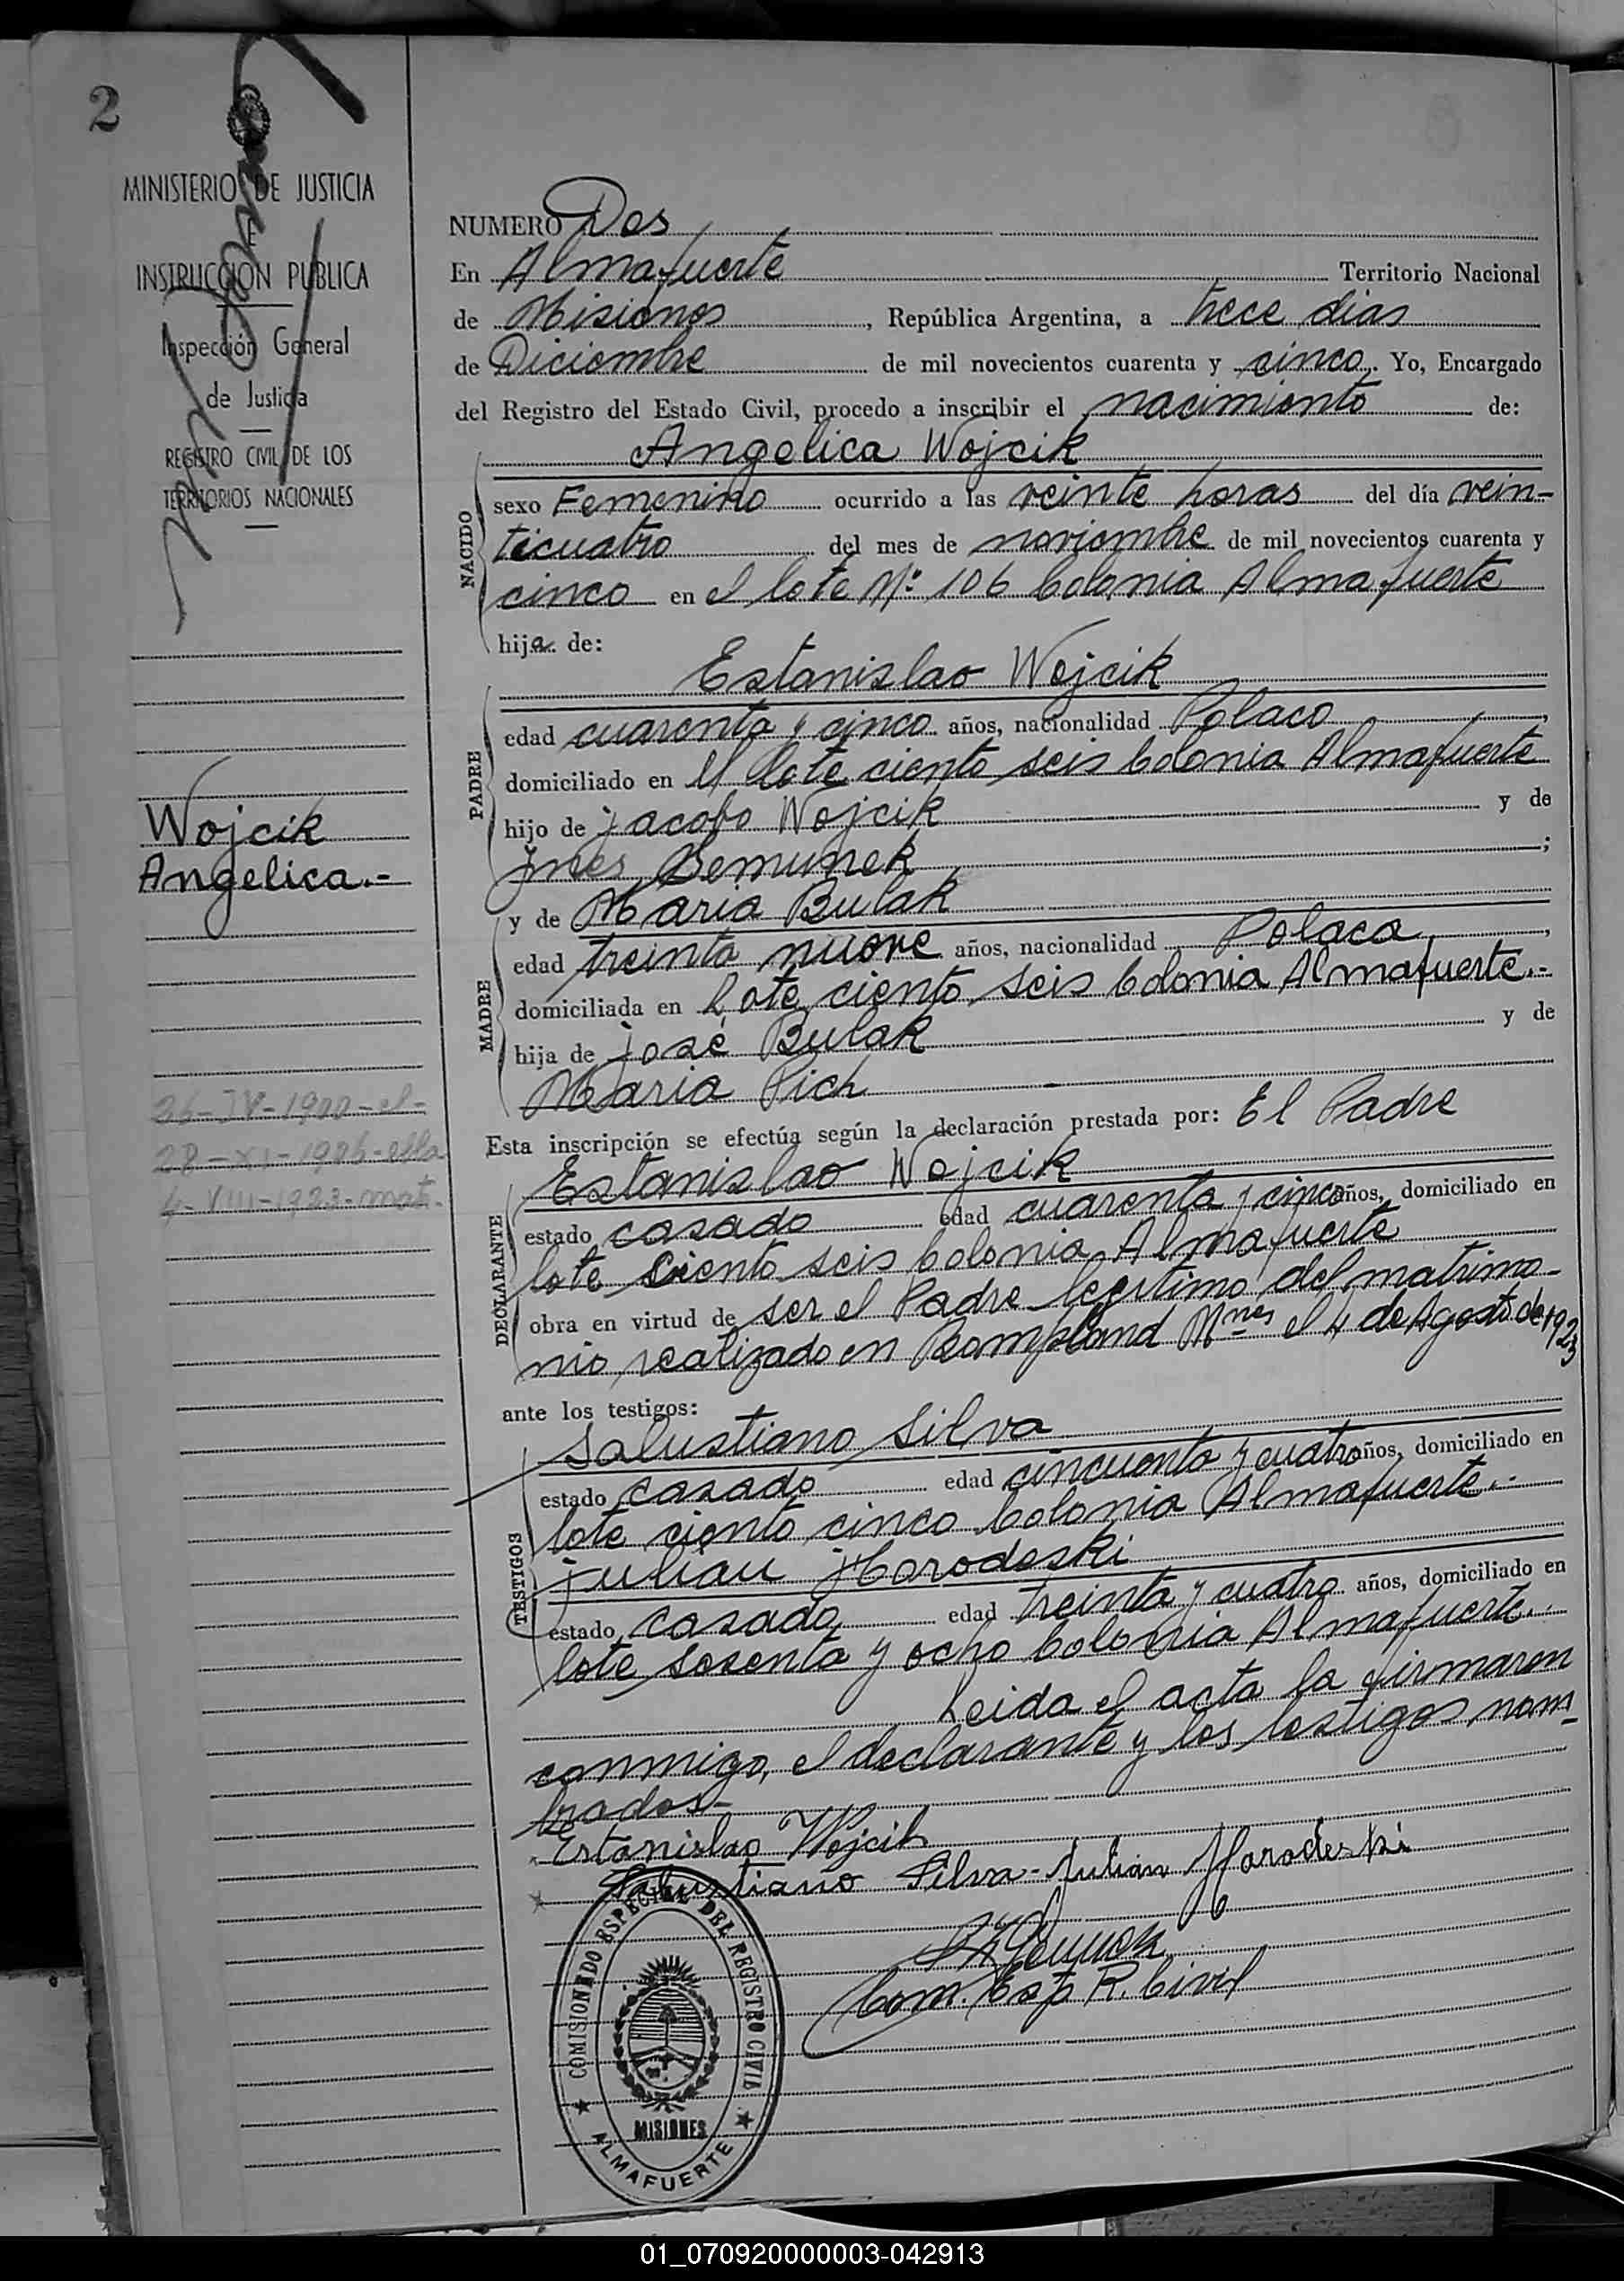 2
MINISTERIO DE JUSTICIA
E
INSTRUCCION PUBLICA
Inspección General
de Justicia
REGISTRO CIVIL DE LOS
TERRITORIOS NACIONALES
Wojcik
Angelica.-
26-IV-1900-el-
28-XI-1906-ella
4-VIII-1923-mat.
NUMERO Dos
En Almafuerte Territorio Nacional
de Misiones, República Argentina, a trece dias
de Diciembre de mil novecientos cuarenta y cinco. Yo, Encargado
del Registro del Estado Civil, procedo a inscribir el nacimiento de:
Angelica Wojcik
NACIDO
sexo Femenino ocurrido a las veinte horas del día vein-
ticuatro del mes de noviembre de mil novecientos cuarenta y
cinco en el lote Nº 106 Colonia Almafuerte
hija de:
Estanislao Wojcik
PADRE
edad cuarenta y cinco años, nacionalidad Polaco,
domiciliado en el Lote ciento seis Colonia Almafuerte
hijo de jacobo Wojcik y de
Ynes Semunek;
MADRE
y de Maria Bulak
edad treinta nueve años, nacionalidad Polaca,
domiciliada en Lote ciento seis Colonia Almafuerte.-
hija de josé Bulak y de
Maria Pich
Esta inscripción se efectúa según la declaración prestada por: El Padre
Estanislao Wojcik
DECLARANTE
estado casado edad cuarenta y cinco años, domiciliado en
lote ciento seis Colonia Almafuerte
obra en virtud de ser el Padre legitimo del matrimo-
nio realizado en Bompland Mnes el 4 de Agosto de 1923
ante los testigos:
Salustiano Silva
TESTIGOS
estado casado edad cincuenta y cuatro años, domiciliado en
lote ciento cinco Colonia Almafuerte.-
julian Horodeski
estado casado edad treinta y cuatro años, domiciliado en
lote sesenta y ocho Colonia Almafuerte.
Leida el acta la firmaron
conmigo, el declarante y los testigos nom-
brados-
Estanislao Wojcik
Salustiano Silva-Julian Horodeski
Com. Esp. R. Civil
COMISIONADO ESPECIAL DEL REGISTRO CIVIL
MISIONES
ALMAFUERTE
01_070920000003-042913